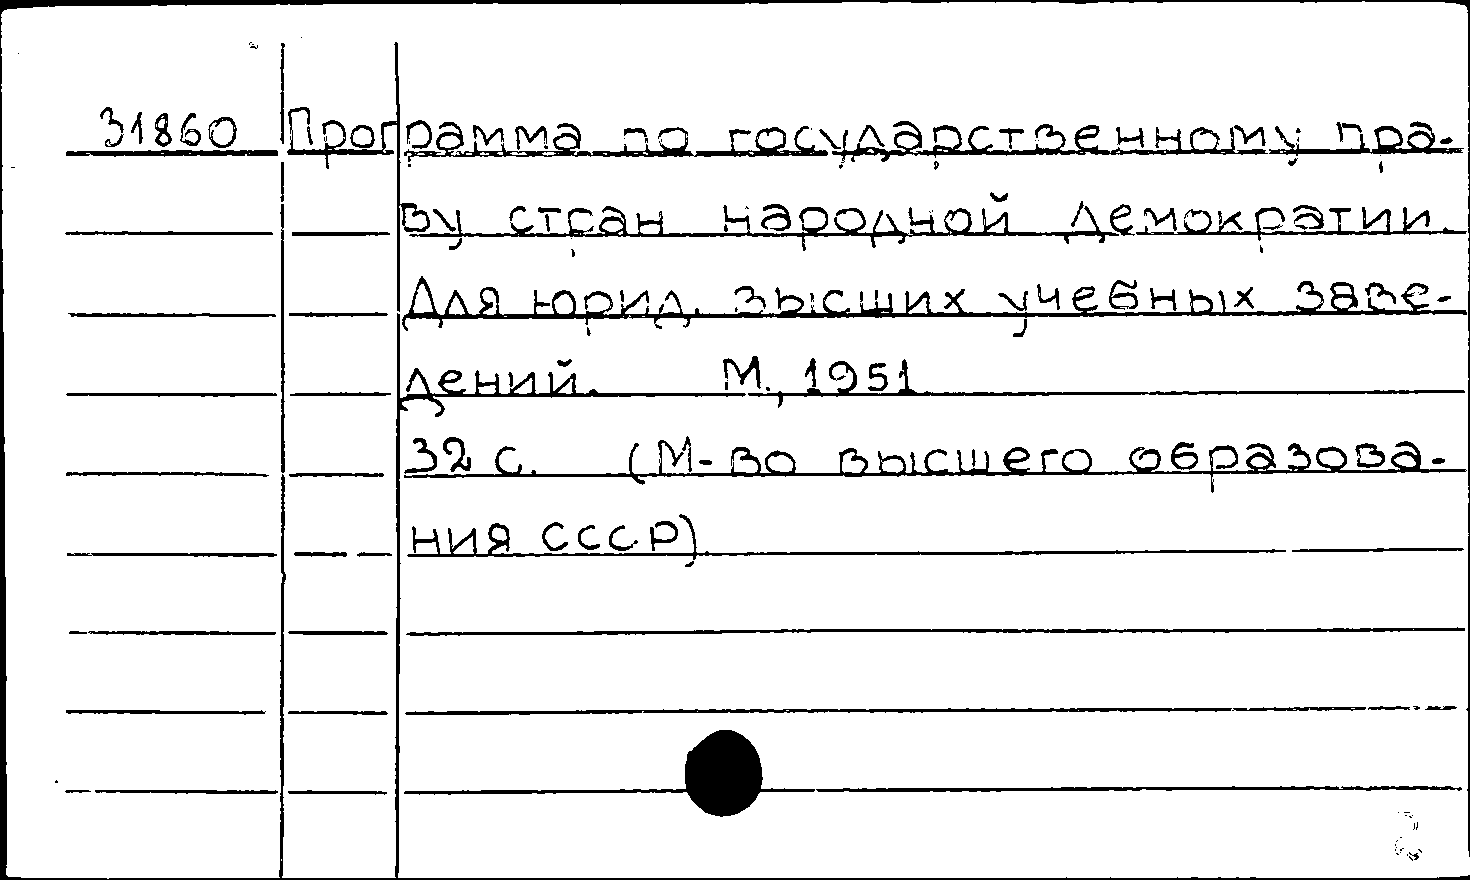 31860 Программа по государственному пра-
ву стран народной демократии.
Для юрид. высших учебных заве-
дений. М., 1951
32 с. (М-во высшего образова-
ния СССР)